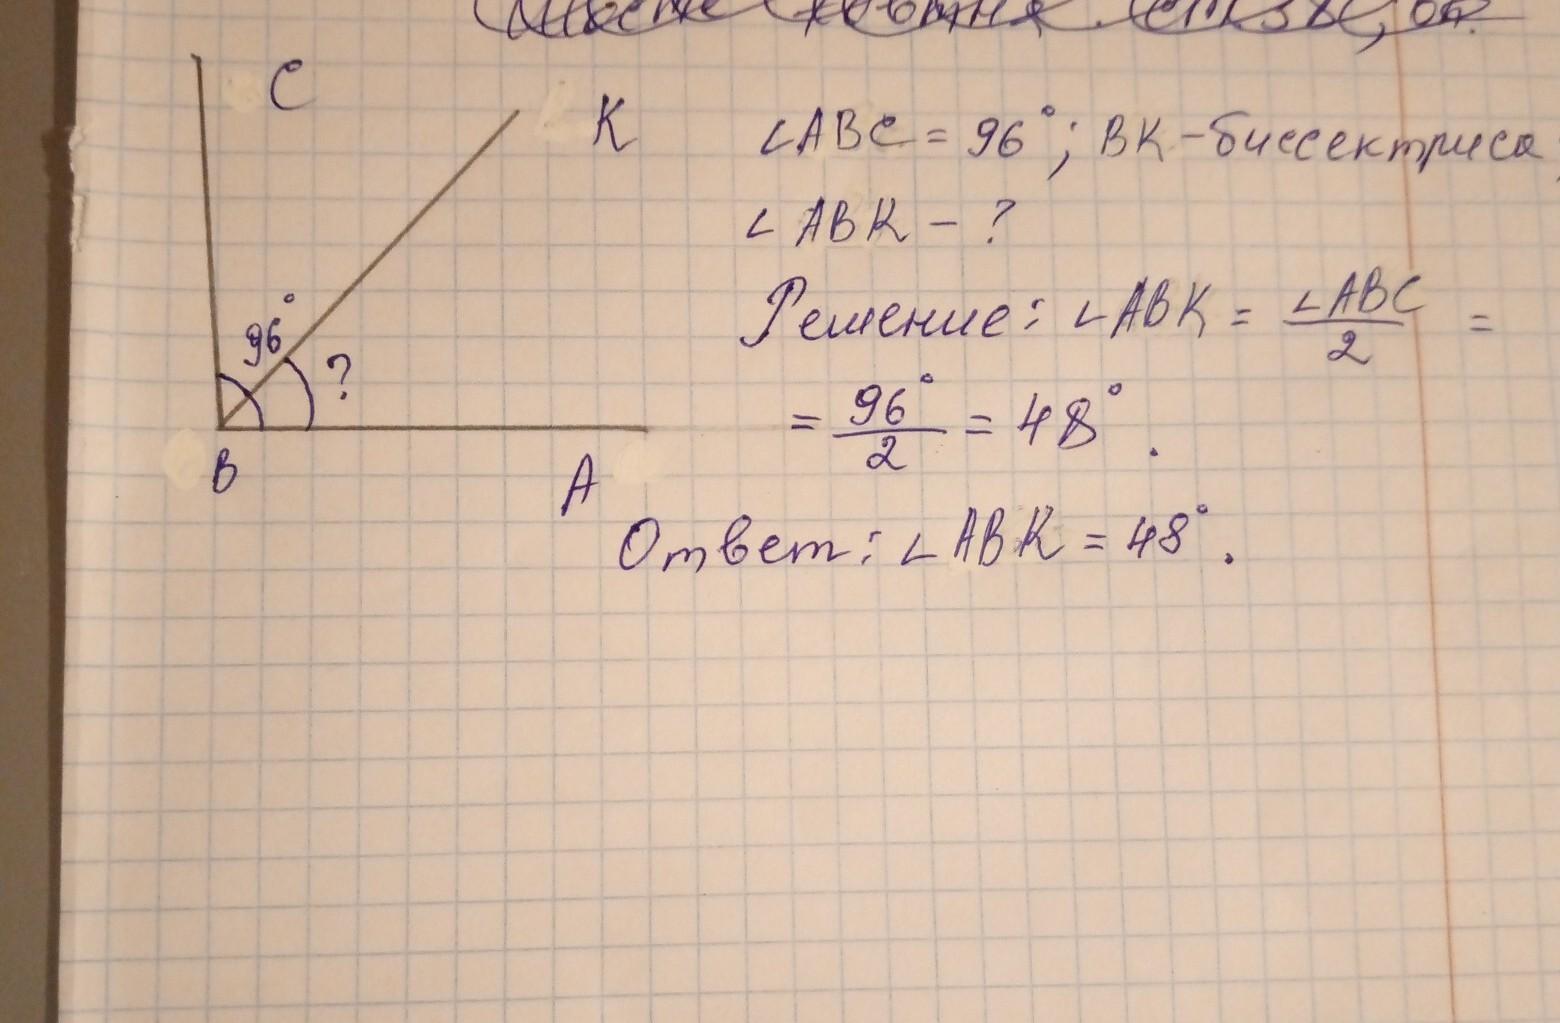 C
K
∠ABC = 96°; BK - биссектриса;
∠ABK - ?
Решение: ∠ABK = ∠ABC / 2 =
= 96° / 2 = 48°.
96°
?
B
A
Ответ: ∠ABK = 48°.